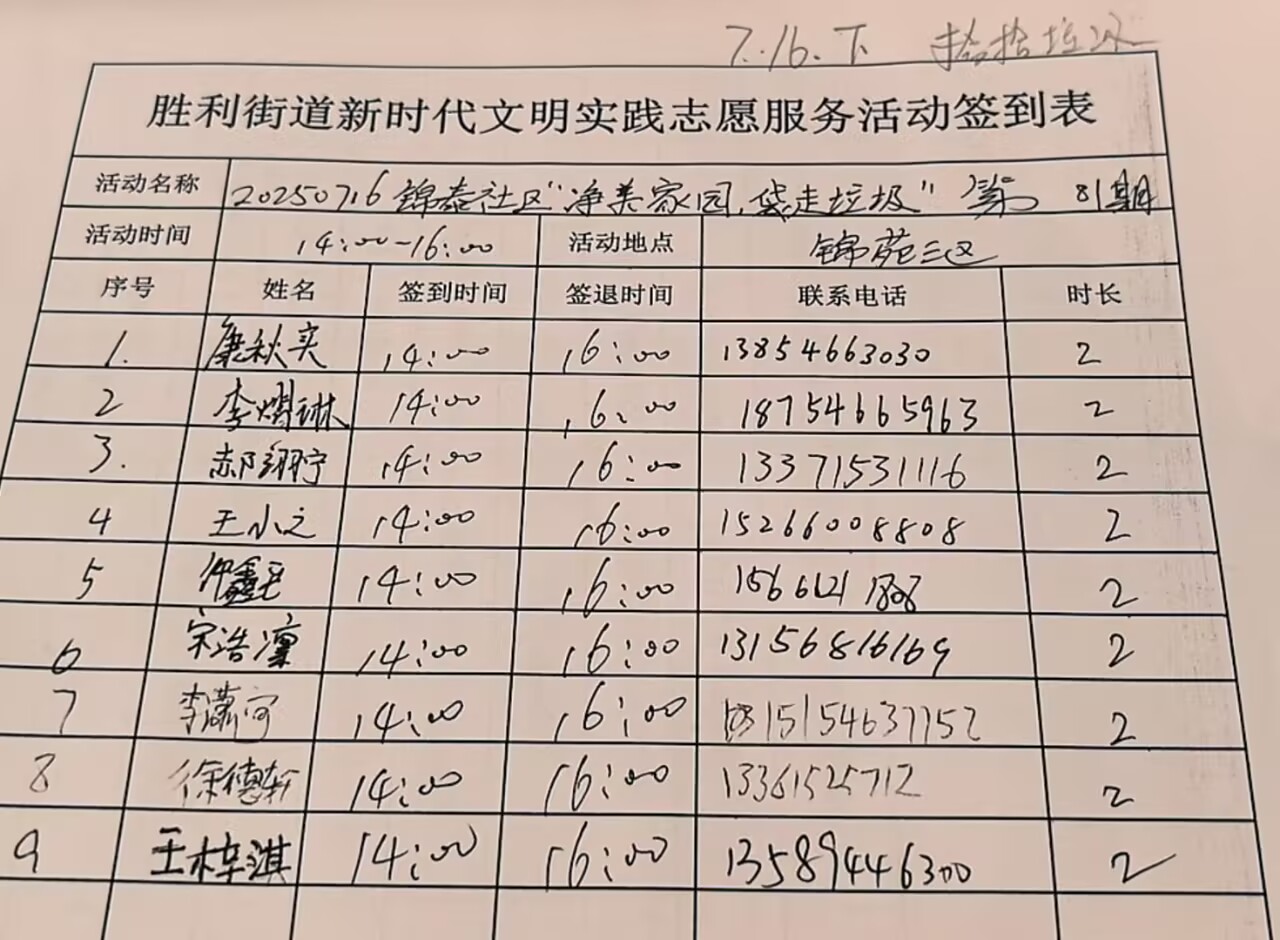 7.16.下 捡拾垃圾
胜利街道新时代文明实践志愿服务活动签到表
活动名称 20250716锦泰社区“净美家园,袋走垃圾”第 81期
活动时间 14:00-16:00 活动地点 锦苑三区
序号 姓名 签到时间 签退时间 联系电话 时长
1. 康秋实 14:00 16:00 13854663030 2
2 李熠琳 14:00 16:00 18754665963 2
3. 郝翊宁 14:00 16:00 13371531116 2
4 王小之 14:00 16:00 15266008808 2
5 14:00 16:00 2
6 宋浩凛 14:00 16:00 13156816169 2
7 李潇河 14:00 16:00 2
8 徐德轩 14:00 16:00 13361525712 2
9 王梓淇 14:00 16:00 13589446300 2